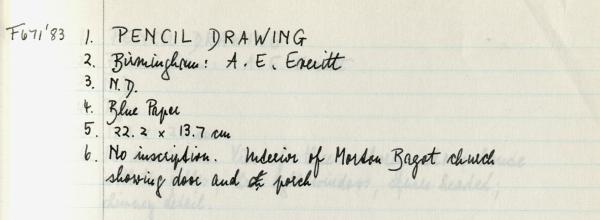 F671'83 1. PENCIL DRAWING
2. Birmingham: A. E. Everitt
3. N.D.
4. Blue Paper
5. 22.2 x 13.7 cm
6. No inscription. Interior of Morton Bagot church
showing door and porch